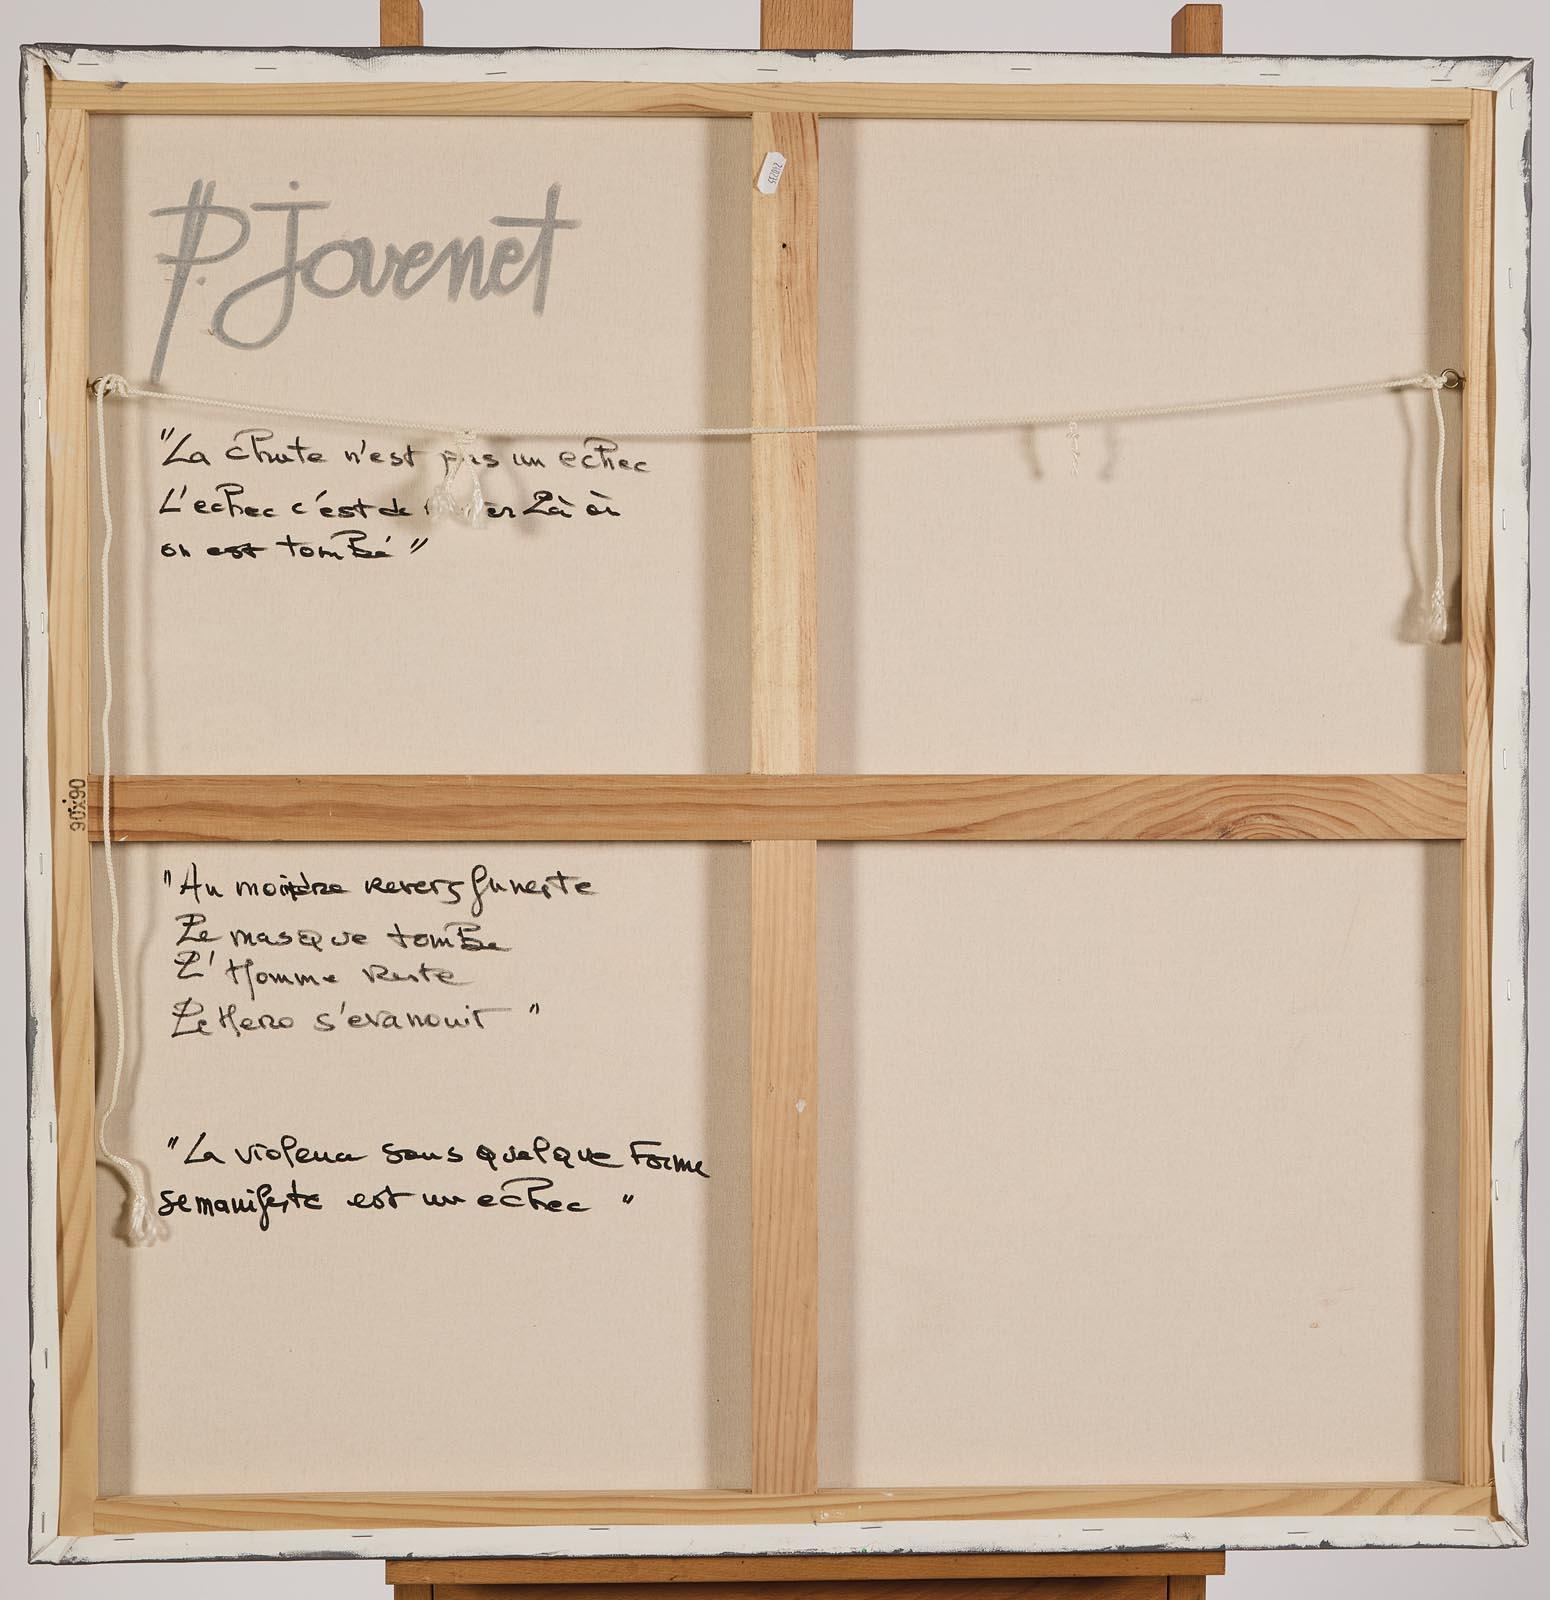 P. Jovenet
"La chute n'est pas un echec
L'echec c'est de là où
on est tombé"
90x90
"Au moindre revers funeste
Le masque tombe
L'Homme reste
Le Hero s'evanouit "
"La violence sous quelque Forme
se manifeste est un echec "